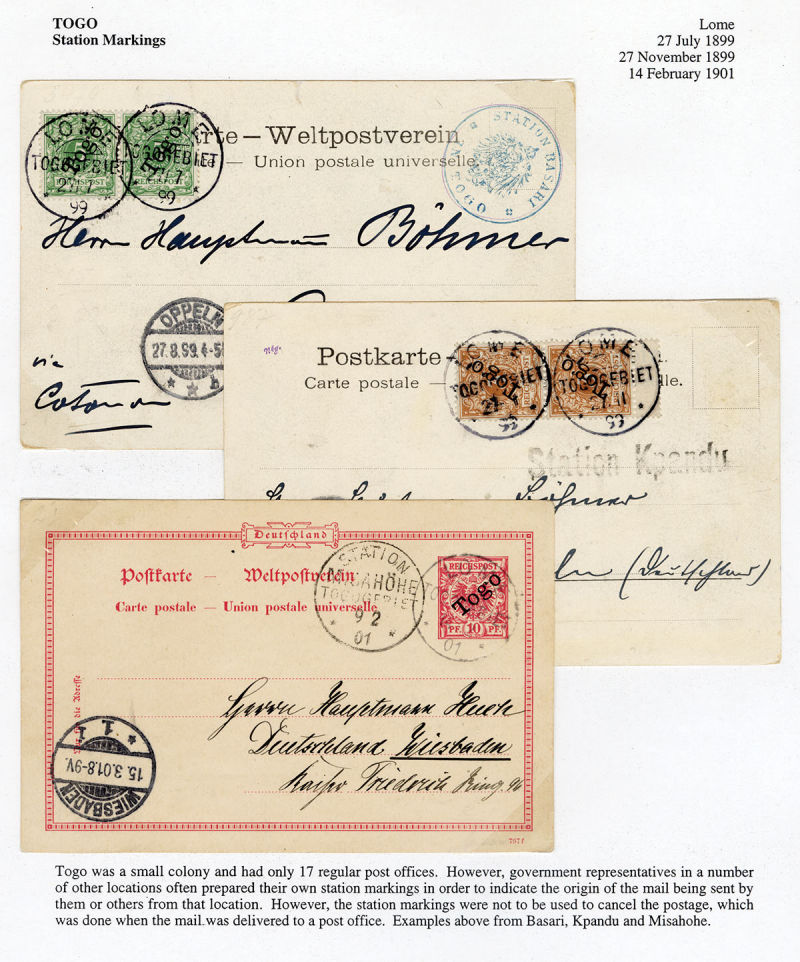 TOGO
Station Markings
Lome
27 July 1899
27 November 1899
14 February 1901
LOME
TOGOGEBIET
27.7
99
LOME
TOGOGEBIET
27.7
99
REICHSPOST
REICHSPOST
Togo
Togo
rte – Weltpostverein
– Union postale universelle
STATION BASARI
TOGO
Herrn Hauptmann Böhmer
OPPELN
27.8.99.4-5
via
Cotonou
Postkarte –
Carte postale –
lle.
LOME
TOGOGEBIET
LOME
TOGOGEBIET
Togo
Togo
Station Kpandu
Böhmer
(Deutschland)
Deutschland
Postkarte — Weltpostverein
Carte postale — Union postale universelle
STATION
MISAHÖHE
TOGOGEBIET
9 2
01
REICHSPOST
Togo
PF. 10 PF.
01
Herrn Hauptmann Huch
Deutschland Wiesbaden
Kaiser Friedrich Ring
1. 1
15.3.01.8-9V.
WIESBADEN
Togo was a small colony and had only 17 regular post offices. However, government representatives in a number
of other locations often prepared their own station markings in order to indicate the origin of the mail being sent by
them or others from that location. However, the station markings were not to be used to cancel the postage, which
was done when the mail was delivered to a post office. Examples above from Basari, Kpandu and Misahohe.